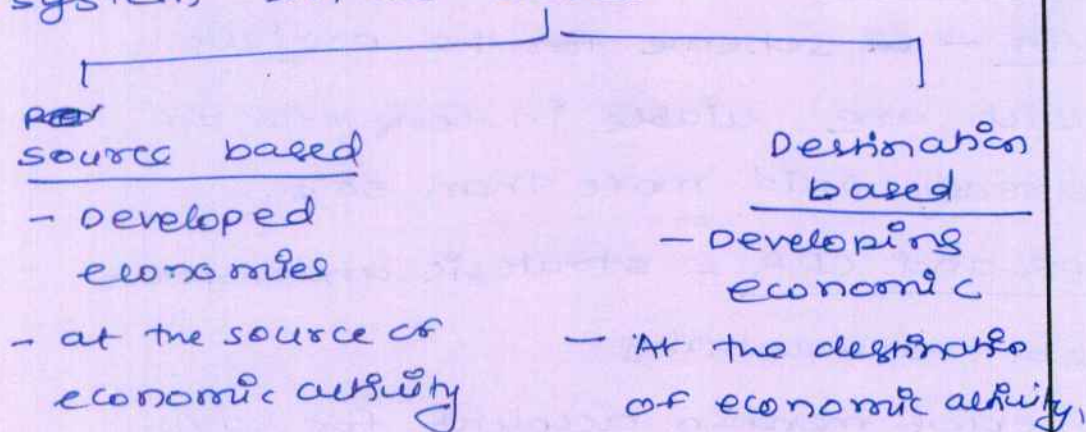 system,
source based
- Developed
economies
- at the source of
economic activity
Destination
based
- Developing
economic
- At the destinatio
of economic activity,